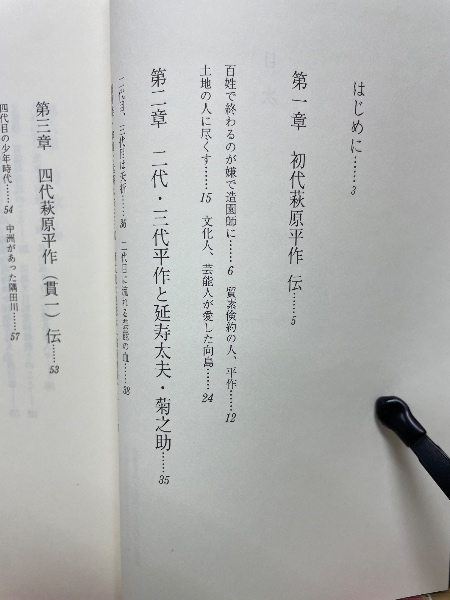 はじめに……3
第一章　初代萩原平作 伝……5
百姓で終わるのが嫌で造園師に……6　質素倹約の人、平作……12
土地の人に尽くす……15　文化人、芸能人が愛した向島……24
第二章　二代・三代平作と延寿太夫・菊之助……35
二代目、三代目は夭折……36　二代目に流れる芸能の血……38
第三章　四代萩原平作（貫一）伝……53
四代目の少年時代……54　中洲があった隅田川……57